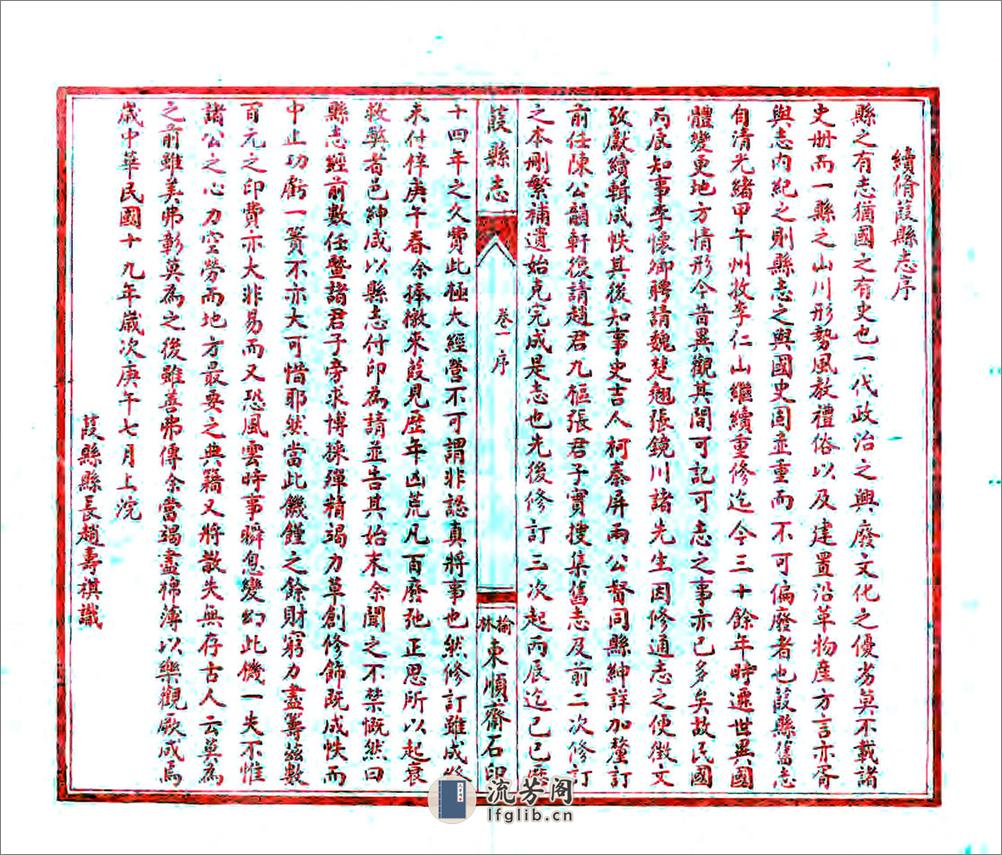 續脩葭縣志序
縣之有志猶國之有史也一代政治之興廢文化之優劣莫不載諸
史册而一縣之山川形勢風教禮俗以及建置沿革物産方言亦胥
與志内紀之則縣志之與國史固並重而不可偏廢者也葭縣舊志
自清光緒甲午州牧李仁山繼續重修迄今三十餘年時遷世異國
體變更地方情形今昔異觀其間可記可志之事亦已多矣故民國
丙辰知事李懷卿聘請魏楚翹張鏡川諸先生因修通志之便徵文
攷獻續輯成帙其後知事史吉人柯秦屏兩公督同縣紳詳加釐訂
前任陳公韻軒復請趙君九樞張君子實搜集舊志及前二次修訂
之本刪繁補遺始克完成是志也先後修訂三次起丙辰迄己巳歷
葭縣志
卷一 序
榆林東順齋石印
十四年之久費此極大經營不可謂非認真將事也然修訂雖成終
未付倅庚午春余捧檄來葭見歷年凶荒凡百廢弛正思所以起衰
救弊者邑紳咸以縣志付印為請並告其始末余聞之不禁慨然曰
縣志經前數任暨諸君子旁求博採殫精竭力草創修飾既成帙而
中止功虧一簣不亦大可惜耶然當此饑饉之餘財窮力盡籌茲數
百元之印費亦大非易而又恐風雲時事瞬息變幻此機一失不惟
諸公之心力空勞而地方最要之典籍又將散失無存古人云莫為
之前雖美弗彰莫為之後雖善弗傳余當竭盡棉薄以樂觀厥成焉
歲中華民國十九年歲次庚午七月上浣
葭縣縣長趙壽祺識
流芳阁
lfglib.cn